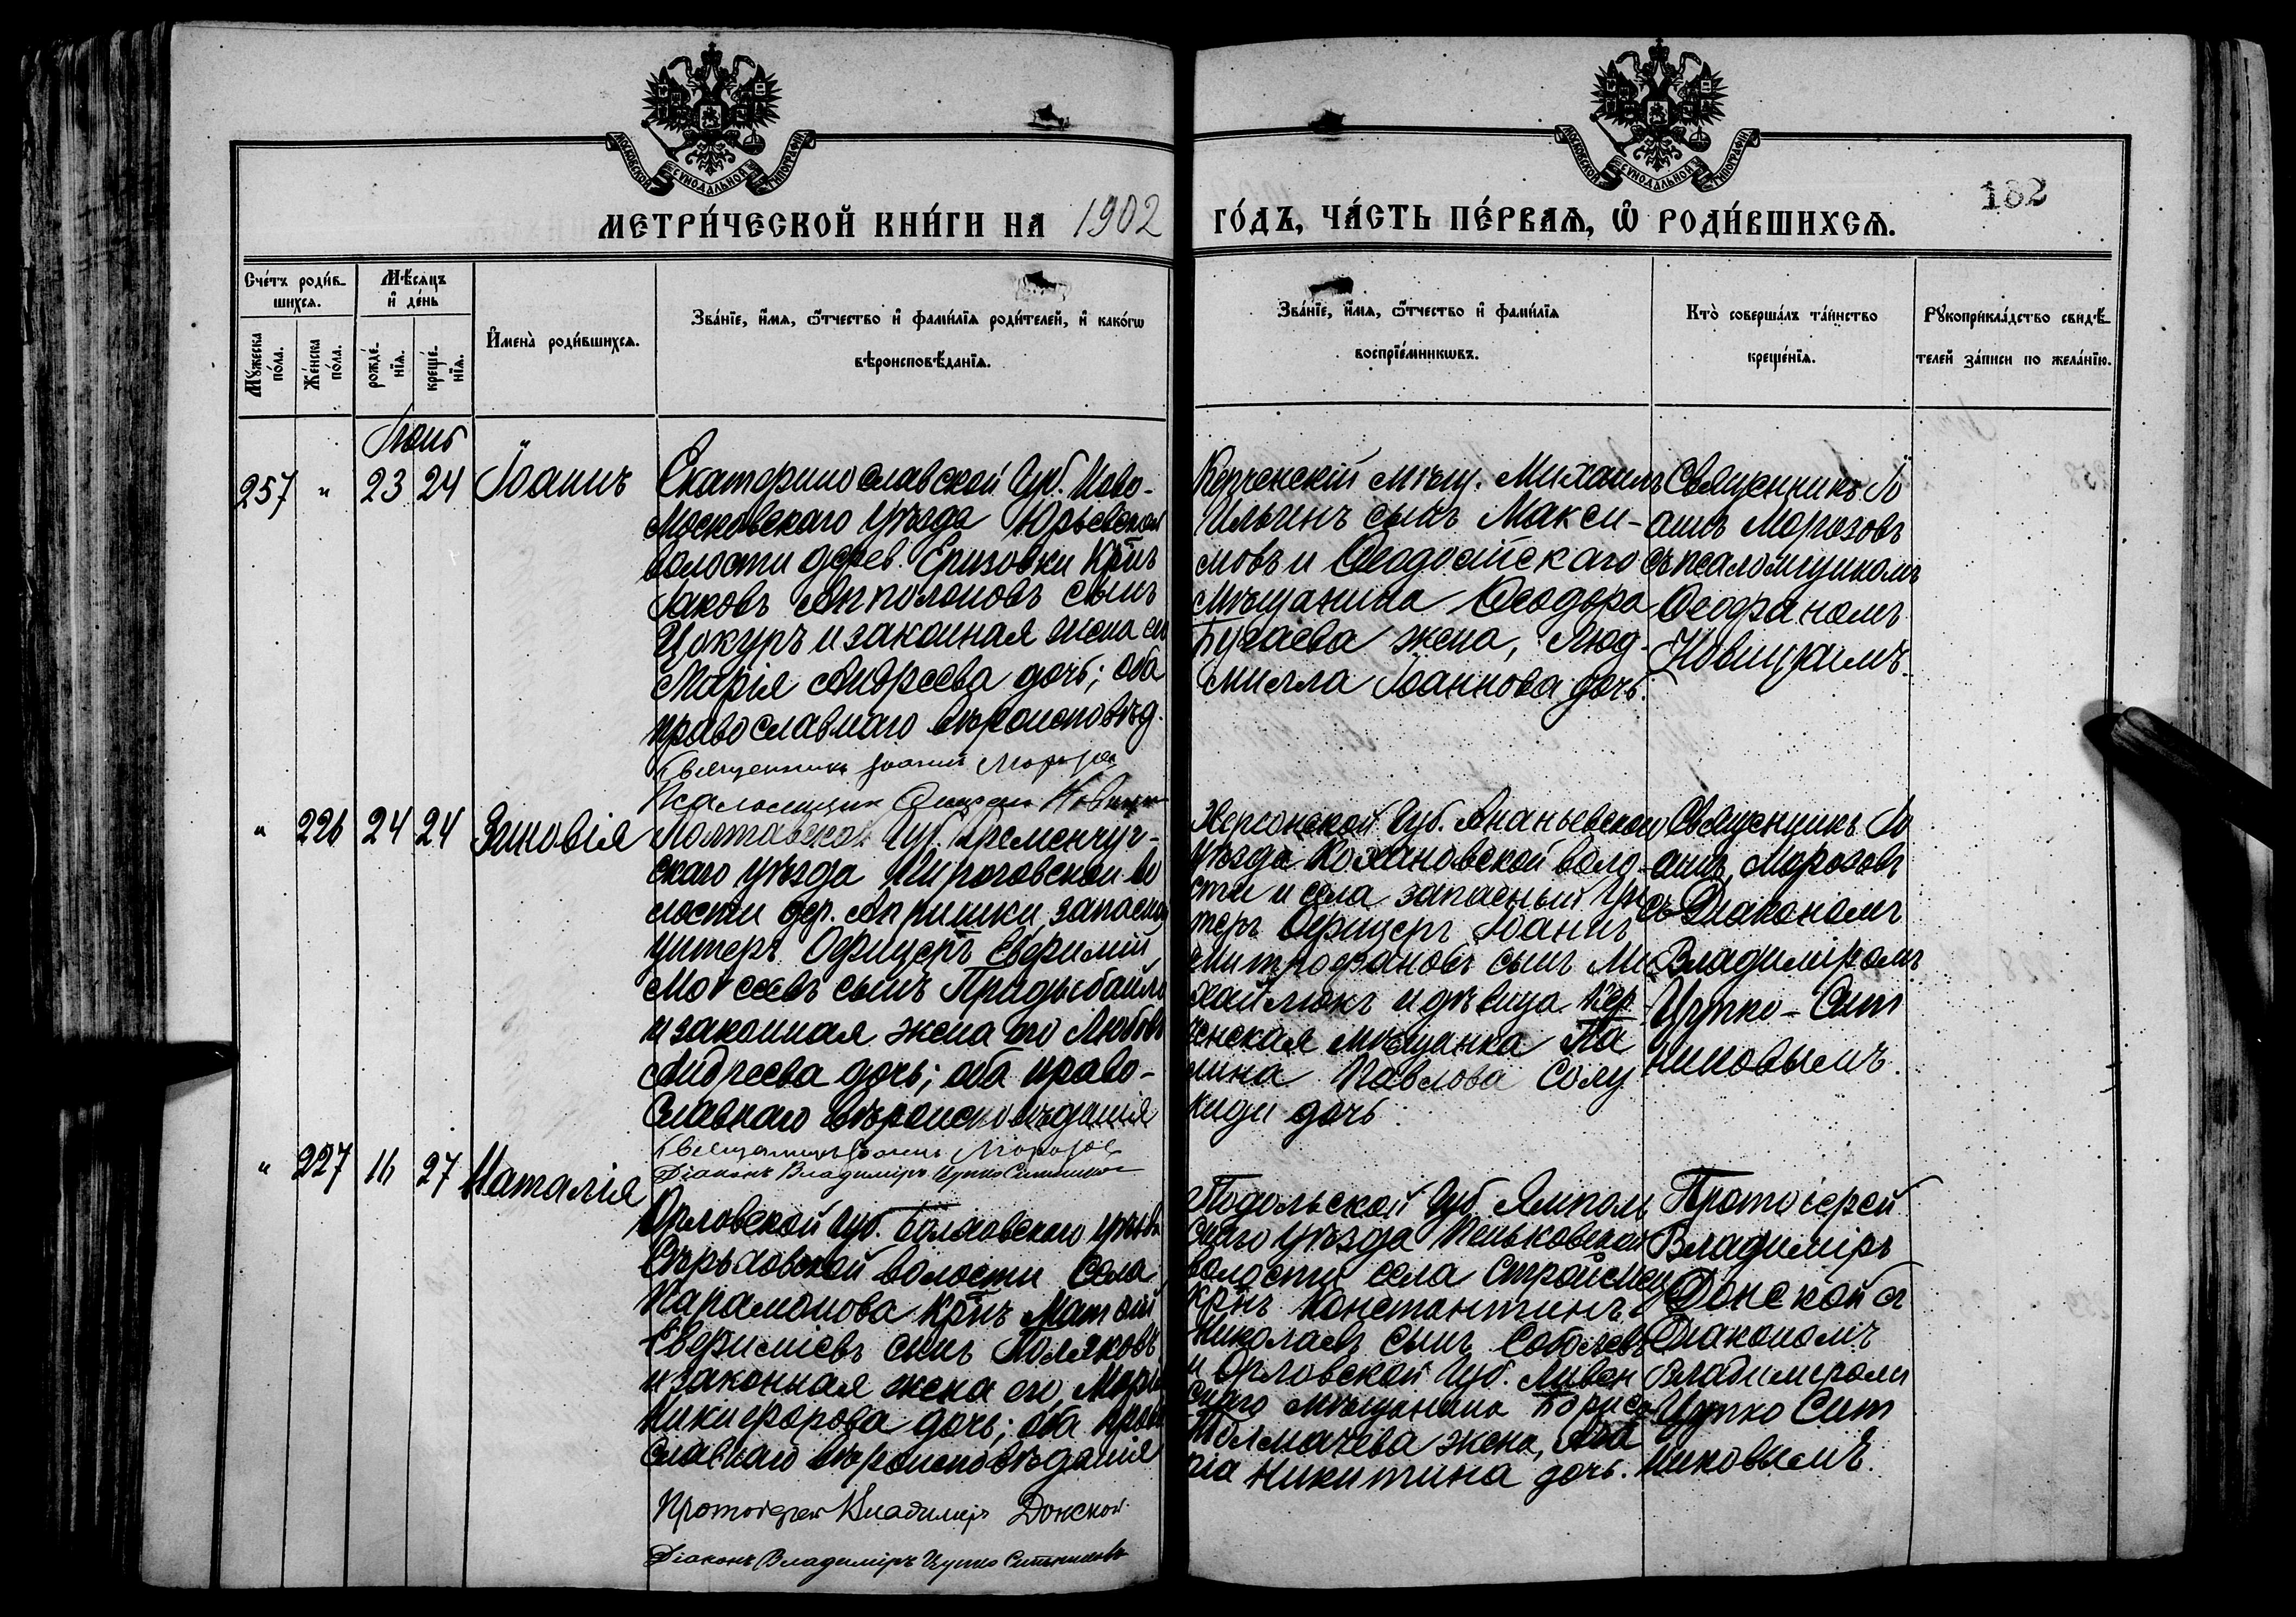 МОСКОВСКОЙ СѴНОДАЛЬНОЙ ТИПОГРАФІИ
МОСКОВСКОЙ СѴНОДАЛЬНОЙ ТИПОГРАФІИ
182
МЕТРИ́ЧЕСКОЙ КНИ́ГИ НА 1902 ГО́ДЪ, ЧА́СТЬ ПЕ́РВАѦ, Ѿ РОДИ́ВШИХСѦ.
Сче́тъ роди́в-
шихсѧ.
Мꙋ́жеска
по́ла.
Же́нска
по́ла.
Мѣ́сѧцъ
и҆ де́нь
рожде́-
нїѧ.
креще́-
нїѧ.
И҆мена̀ роди́вшихсѧ.
Зва́нїе, и҆́мѧ, ѻ҆́тчество и҆ фами́лїѧ роди́телей, и҆ како́гѡ
вѣроисповѣ́данїѧ.
Зва́нїе, и҆́мѧ, ѻ҆́тчество и҆ фами́лїѧ
воспрїе́мникѡвъ.
Кто̀ соверша́лъ та́инство
креще́нїѧ.
Рꙋкоприкла́дство свидѣ́-
телей за́писи по жела́нїю.
257 " 23 24 Іоаннъ
Екатеринославской Губ. Ново-
московскаго уѣзда Юрьевской
волости дерев. Кр̃нъ
Іаковъ сынъ
Цокуръ и законная жена его
Марія Андреева дочь; оба
православнаго вѣроисповѣд.
Священникъ Іоаннъ Морозов
Псаломщик
Керченскій мѣщ. Михаилъ
Ильинъ сынъ Макси-
мовъ и Ѳеодосійскаго
мѣщанина Ѳеодора
Бугаева жена, Люд-
милла Іоаннова дочь.
Священникъ Іо
аннъ Морозовъ
съ псаломщикомъ
Ѳеофаномъ
Новицкимъ.
" 226 24 24 Зиновія
Полтавской Губ. Кременчуг-
скаго уѣзда Пироговской во
лости дер. запасный
унтеръ Офицеръ Евфимій
Моѵсеевъ сынъ Придыбайло
и законная жена его Любовь
Андреева дочь; оба право-
славнаго вѣроисповѣданія
Священникъ Іоаннъ Морозов
Діаконъ Владиміръ Цупко Ситников
Херсонской Губ. Ананьевскаго
уѣзда воло-
сти и села запасный Ун
теръ Офицеръ Іоаннъ
Митрофановъ сынъ Ми
хайлюкъ и дѣвица Кер
ченская мѣщанка
Павлова Солу
киди дочь
Священникъ Іо
аннъ Морозовъ
съ Діакономъ
Владиміромъ
Цупко-Сит
никовымъ.
" 227 16 27 Наталія
Орловской Губ. Болховского уѣзда
волости Села
Парамонова Кр̃нъ Матѳій
Евфиміевъ сынъ Поляковъ
и законная жена его, Марія
Никифорова дочь; оба право
славнаго вѣроисповѣданія
Протоіерей Владиміръ Донской
Діаконъ Владиміръ Цупко Ситниковъ
Подольской Губ. Ямполь
скаго уѣзда Пеньковской
волости села
кр̃нъ Константинъ
Николаевъ сынъ Соболевъ
и Орловской Губ. Ливен
скаго мѣщанина Бориса
Толмачева жена,
Никитина дочь.
Протоіерей
Владиміръ
Донской съ
Діакономъ
Владиміромъ
Цупко Сит
никовымъ.